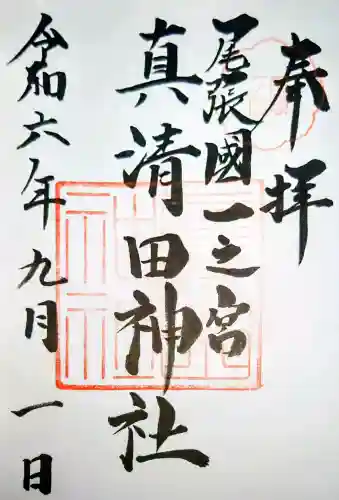 奉拝
尾張國一之宮
真清田神社
令和六年九月一日